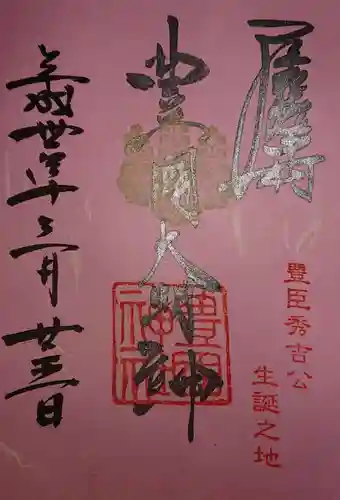 豊国大明神
平成卅年三月廿五日
豐臣秀吉公
生誕之地
豊国神社